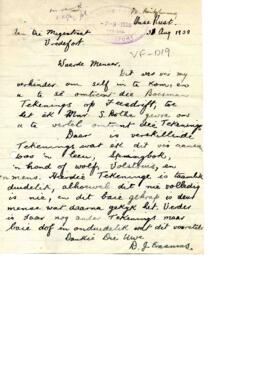 Onse Rust
Aan Die Magistraat
Vredefort
VF-D19
Waarde Meneer,
Dit was vir my
verhinder om self in te kom, en
u te sê omtrent die Boesman
Tekenings op
het ek Mnr S. gevra om
u te vertel omtrent die Tekenings
Daar is verskillende
Tekenings wat
was 'n leeu, Springbok,
'n hond of wolf, Volstruis, en
mens. Hierdie Tekeninge is taamlik
duidelik, alhoewel dit nie volledig
is nie, en dit baie gekrap is deur
mense wat daarna gekyk het. Verder
is daar nog ander Tekenings maar
baie dof en onduidelik wat dit voorstel
Dankie Die Uwe
D. J. Erasmus